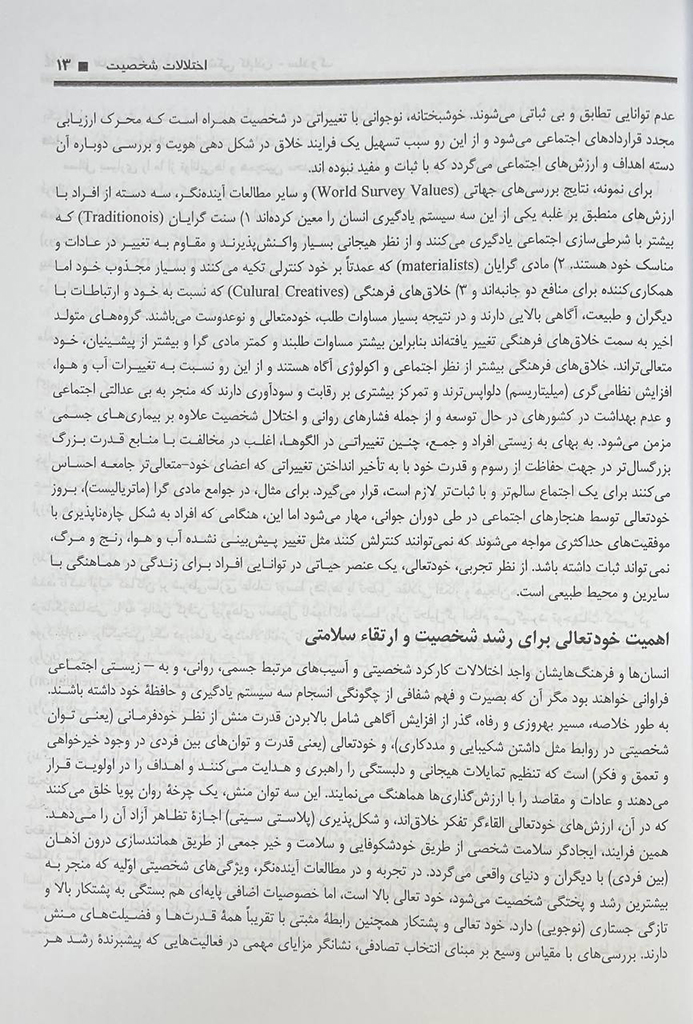 اختلالات شخصیت ■ ۱۳
عدم توانایی تطابق و بی ثباتی می‌شوند. خوشبختانه، نوجوانی با تغییراتی در شخصیت همراه است که محرک ارزیابی
مجدد قراردادهای اجتماعی می‌شود و از این رو سبب تسهیل یک فرایند خلاق در شکل دهی هویت و بررسی دوباره آن
دسته اهداف و ارزش‌های اجتماعی می‌گردد که با ثبات و مفید نبوده اند.
برای نمونه، نتایج بررسی‌های جهانی (World Survey Values) و سایر مطالعات آینده‌نگر، سه دسته از افراد با
ارزش‌های منطبق بر غلبه یکی از این سه سیستم یادگیری انسان را معین کرده‌اند ۱) سنت گرایان (Traditionois) که
بیشتر با شرطی‌سازی اجتماعی یادگیری می‌کنند و از نظر هیجانی بسیار واکنش‌پذیرند و مقاوم به تغییر در عادات و
مناسک خود هستند. ۲) مادی گرایان (materialists) که عمدتاً بر خود کنترلی تکیه می‌کنند و بسیار مجذوب خود اما
همکاری‌کننده برای منافع دو جانبه‌اند و ۳) خلاق‌های فرهنگی (Culural Creatives) که نسبت به خود و ارتباطات با
دیگران و طبیعت، آگاهی بالایی دارند و در نتیجه بسیار مساوات طلب، خودمتعالی و نوعدوست می‌باشند. گروه‌های متولد
اخیر به سمت خلاق‌های فرهنگی تغییر یافته‌اند بنابراین بیشتر مساوات طلبند و کمتر مادی گرا و بیشتر از پیشینیان، خود
متعالی‌تراند. خلاق‌های فرهنگی بیشتر از نظر اجتماعی و اکولوژی آگاه هستند و از این رو نسبت به تغییرات آب و هوا،
افزایش نظامی‌گری (میلیتاریسم) دلواپس‌ترند و تمرکز بیشتری بر رقابت و سودآوری دارند که منجر به بی عدالتی اجتماعی
و عدم بهداشت در کشورهای در حال توسعه و از جمله فشارهای روانی و اختلال شخصیت علاوه بر بیماری‌های جسمی
مزمن می‌شود. به بهای به زیستی افراد و جمع، چنین تغییراتی در الگوها، اغلب در مخالفت با منابع قدرت بزرگ
بزرگسال‌تر در جهت حفاظت از رسوم و قدرت خود با به تأخیر انداختن تغییراتی که اعضای خود-متعالی‌تر جامعه احساس
می‌کنند برای یک اجتماع سالم‌تر و با ثبات‌تر لازم است، قرار می‌گیرد. برای مثال، در جوامع مادی گرا (ماتریالیست)، بروز
خودتعالی توسط هنجارهای اجتماعی در طی دوران جوانی، مهار می‌شود اما این، هنگامی که افراد به شکل چاره‌ناپذیری با
موفقیت‌های حداکثری مواجه می‌شوند که نمی‌توانند کنترلش کنند مثل تغییر پیش‌بینی نشده آب و هوا، رنج و مرگ،
نمی‌تواند ثبات داشته باشد. از نظر تجربی، خودتعالی، یک عنصر حیاتی در توانایی افراد برای زندگی در هماهنگی با
سایرین و محیط طبیعی است.
اهمیت خودتعالی برای رشد شخصیت و ارتقاء سلامتی
انسان‌ها و فرهنگ‌هایشان واجد اختلالات کارکرد شخصیتی و آسیب‌های مرتبط جسمی، روانی، و به – زیستی اجتماعی
فراوانی خواهند بود مگر آن که بصیرت و فهم شفافی از چگونگی انسجام سه سیستم یادگیری و حافظهٔ خود داشته باشند.
به طور خلاصه، مسیر بهروزی و رفاه، گذر از افزایش آگاهی شامل بالابردن قدرت منش از نظر خودفرمانی (یعنی توان
شخصیتی در روابط مثل داشتن شکیبایی و مددکاری)، و خودتعالی (یعنی قدرت و توان‌های بین فردی در وجود خیرخواهی
و تعمق و فکر) است که تنظیم تمایلات هیجانی و دلبستگی را راهبری و هدایت می‌کنند و اهداف را در اولویت قرار
می‌دهند و عادات و مقاصد را با ارزش‌گذاری‌ها هماهنگ می‌نمایند. این سه توان منش، یک چرخهٔ روان پویا خلق می‌کنند
که در آن، ارزش‌های خودتعالی القاءگر تفکر خلاق‌اند، و شکل‌پذیری (پلاستی سیتی) اجازهٔ تظاهر آزاد آن را می‌دهد.
همین فرایند، ایجادگر سلامت شخصی از طریق خودشکوفایی و سلامت و خیر جمعی از طریق همانندسازی درون اذهان
(بین فردی) با دیگران و دنیای واقعی می‌گردد. در تجربه و در مطالعات آینده‌نگر، ویژگی‌های شخصیتی اوّلیه که منجر به
بیشترین رشد و پختگی شخصیت می‌شود، خود تعالی بالا است، اما خصوصیات اضافی پایه‌ای هم بستگی به پشتکار بالا و
تازگی جستاری (نوجویی) دارد. خود تعالی و پشتکار همچنین رابطهٔ مثبتی با تقریباً همهٔ قدرت‌ها و فضیلت‌های منش
دارند. بررسی‌های با مقیاس وسیع بر مبنای انتخاب تصادفی، نشانگر مزایای مهمی در فعالیت‌هایی که پیشبرندهٔ رشد هر